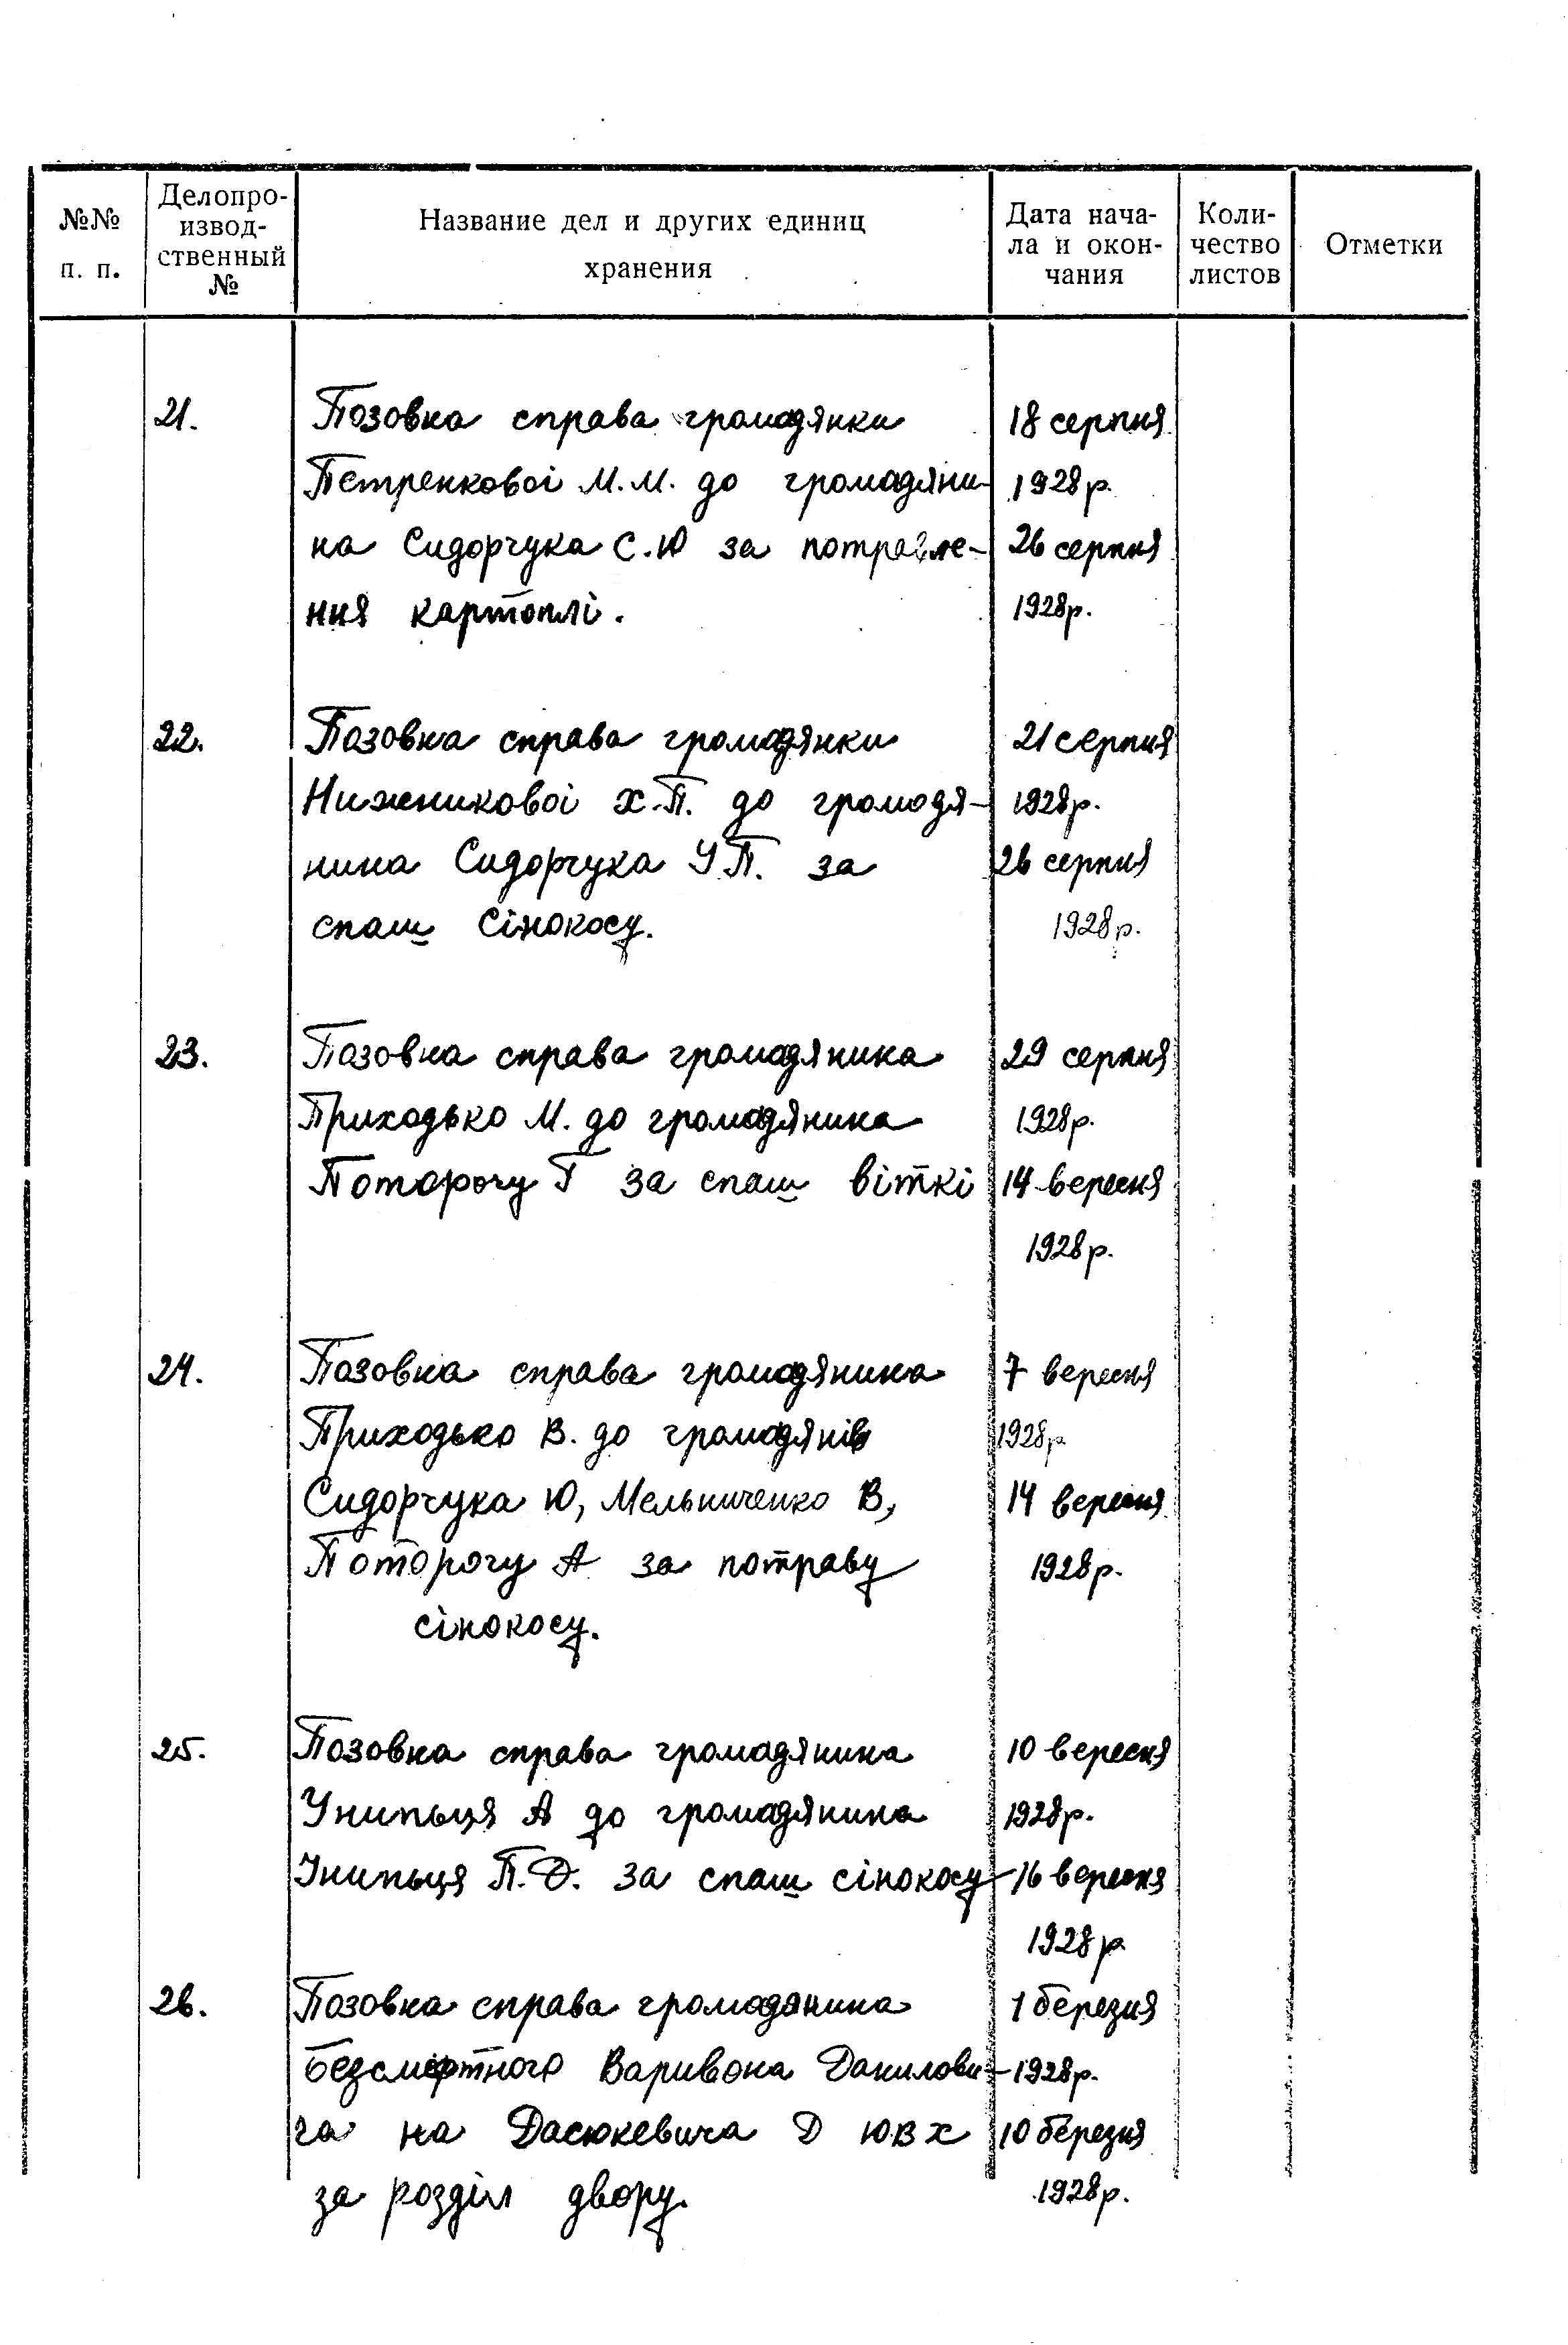 №№ п. п.
Делопро-
извод-
ственный
№
Название дел и других единиц
хранения
Дата нача-
ла и окон-
чания
Коли-
чество
листов
Отметки
21. Позовна справа громадянки 18 серпня
Петренкової М.М. до громадяни- 1928р.
на Сидорчука С.Ю за потравле- 26 серпня
ння картоплі. 1928р.
22. Позовна справа громадянки 21 серпня
Нижникової Х.П. до громадя- 1928р.
нина Сидорчука У П. за 26 серпня
спаш сінокосу. 1928р.
23. Позовна справа громадянина 29 серпня
Приходько М. до громадянина 1928р.
Поторочу Г за спаш віткі 14 вересня
1928р.
24. Позовна справа громадянина 7 вересня
Приходько В. до громадянів 1928р
Сидорчука Ю, Мельниченко В, 14 вересня
Поторочу А за потраву 1928р.
сінокосу.
25. Позовна справа громадянина 10 вересня
А до громадянина 1928р.
П.Д. за спаш сінокосу 16 вересня
1928р
26. Позовна справа громадянина 1 березня
Безсмертного Варивона Данилови- 1928р.
ча на Дасюкевича Д Ю В Х 10 березня
за розділ двору. 1928р.